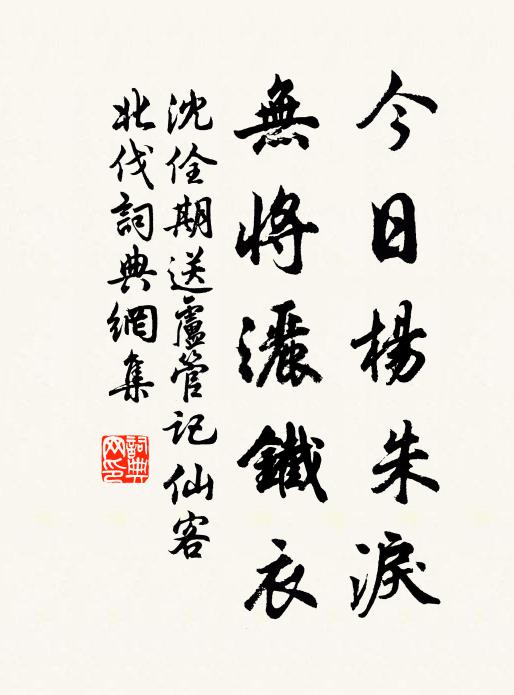 今日楊朱淚
無將灑鐵衣
沈佺期送盧管記仙客
北伐詞典網集
詞典网印